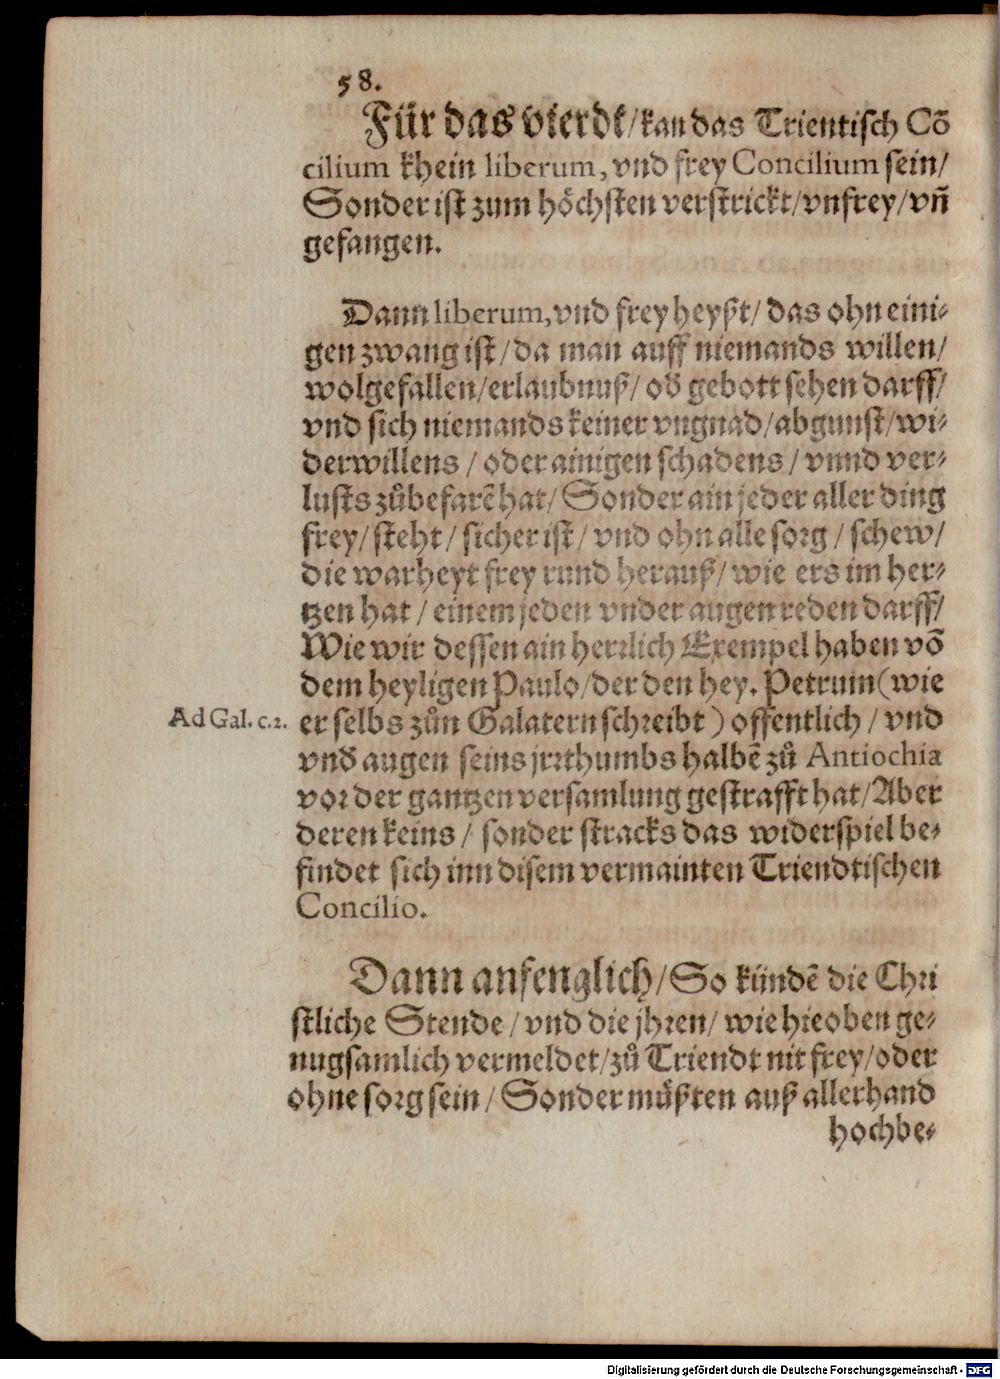 58.
Für das vierdt/kan das Trientisch Cõ
cilium khein liberum, vnd frey Concilium sein/
Sonder ist zum hoͤchsten verstrickt/vnfrey/vñ
gefangen.
Dann liberum, vnd frey heyßt/ das ohn eini-
gen zwang ist/da man auff niemands willen/
wolgefallen/erlaubnuß/ od̃ gebott sehen darff/
vnd sich niemands keiner vngnad/abgunst/wi-
derwillens / oder ainigen schadens / vnnd ver-
lusts zuͦbefarẽ hat/ Sonder ain jeder aller ding
frey/ steht/ sicher ist/ vnd ohn alle sorg / schew/
die warheyt frey rund herauß/ wie ers im her-
tzen hat / einem jeden vnder augen reden darff/
Wie wir dessen ain herrlich Exempel haben võ
dem heyligen Paulo/der den hey. Petrum (wie
Ad Gal. c.2.
er selbs zuͦn Galatern schreibt) offentlich / vnd
vnd̃ augen seins jrrthumbs halbẽ zuͦ Antiochia
vor der gantzen versamlung gestrafft hat/Aber
deren keins / sonder stracks das widerspiel be-
findet sich inn disem vermainten Triendtischen
Concilio.
Dann anfenglich/So kündẽ die Chri
stliche Stende / vnd die jhren/ wie hieoben ge-
nugsamlich vermeldet/zuͦ Triendt nit frey/oder
ohne sorg sein / Sonder muͤßten auß allerhand
hochbe-
Digitalisierung gefördert durch die Deutsche Forschungsgemeinschaft - DFG